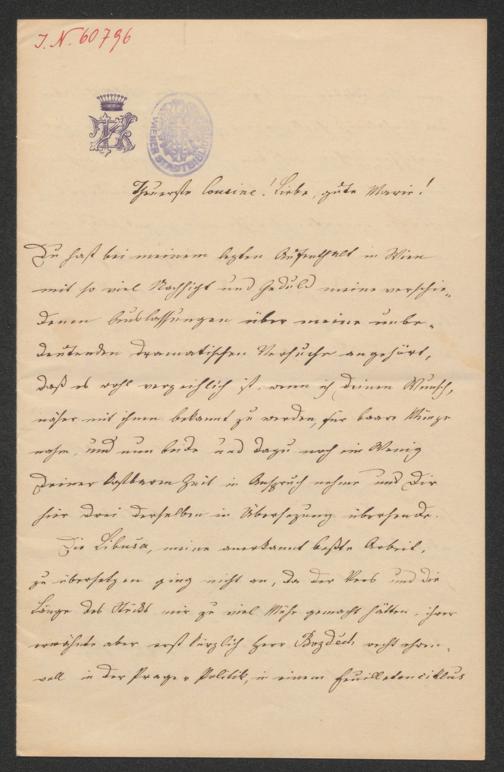 J. N. 60796
WIENER STADTBIBLIOTHEK
Theuerste Cousine! Liebe, gute Marie!
Du hast bei meinem letzten Aufenthalt in Wien
mit so viel Nachsicht und Geduld meine verschie-
denen Auslassungen über meine unbe-
deutenden dramatischen Versuche angehört,
daß es wohl verzeihlich ist, wenn ich Deinen Wunsch,
näher mit ihnen bekannt zu werden, für baare Münze
nahm, und nun beide und dazu noch ein Wenig
Deiner kostbaren Zeit in Anspruch nehme und Dir
hier drei derselben in Übersetzung übersende.
Die Libusa, meine anerkannt beßte Arbeit,
zu übersetzen ging nicht an, da der Vers und die
Länge des Stücks mir zu viel Mühe gemacht hätten, ihrer
erwähnte aber erst kürzlich Herr Bozdech recht ehren-
voll in der Prager Politik, in einem Feuilletoncyklus